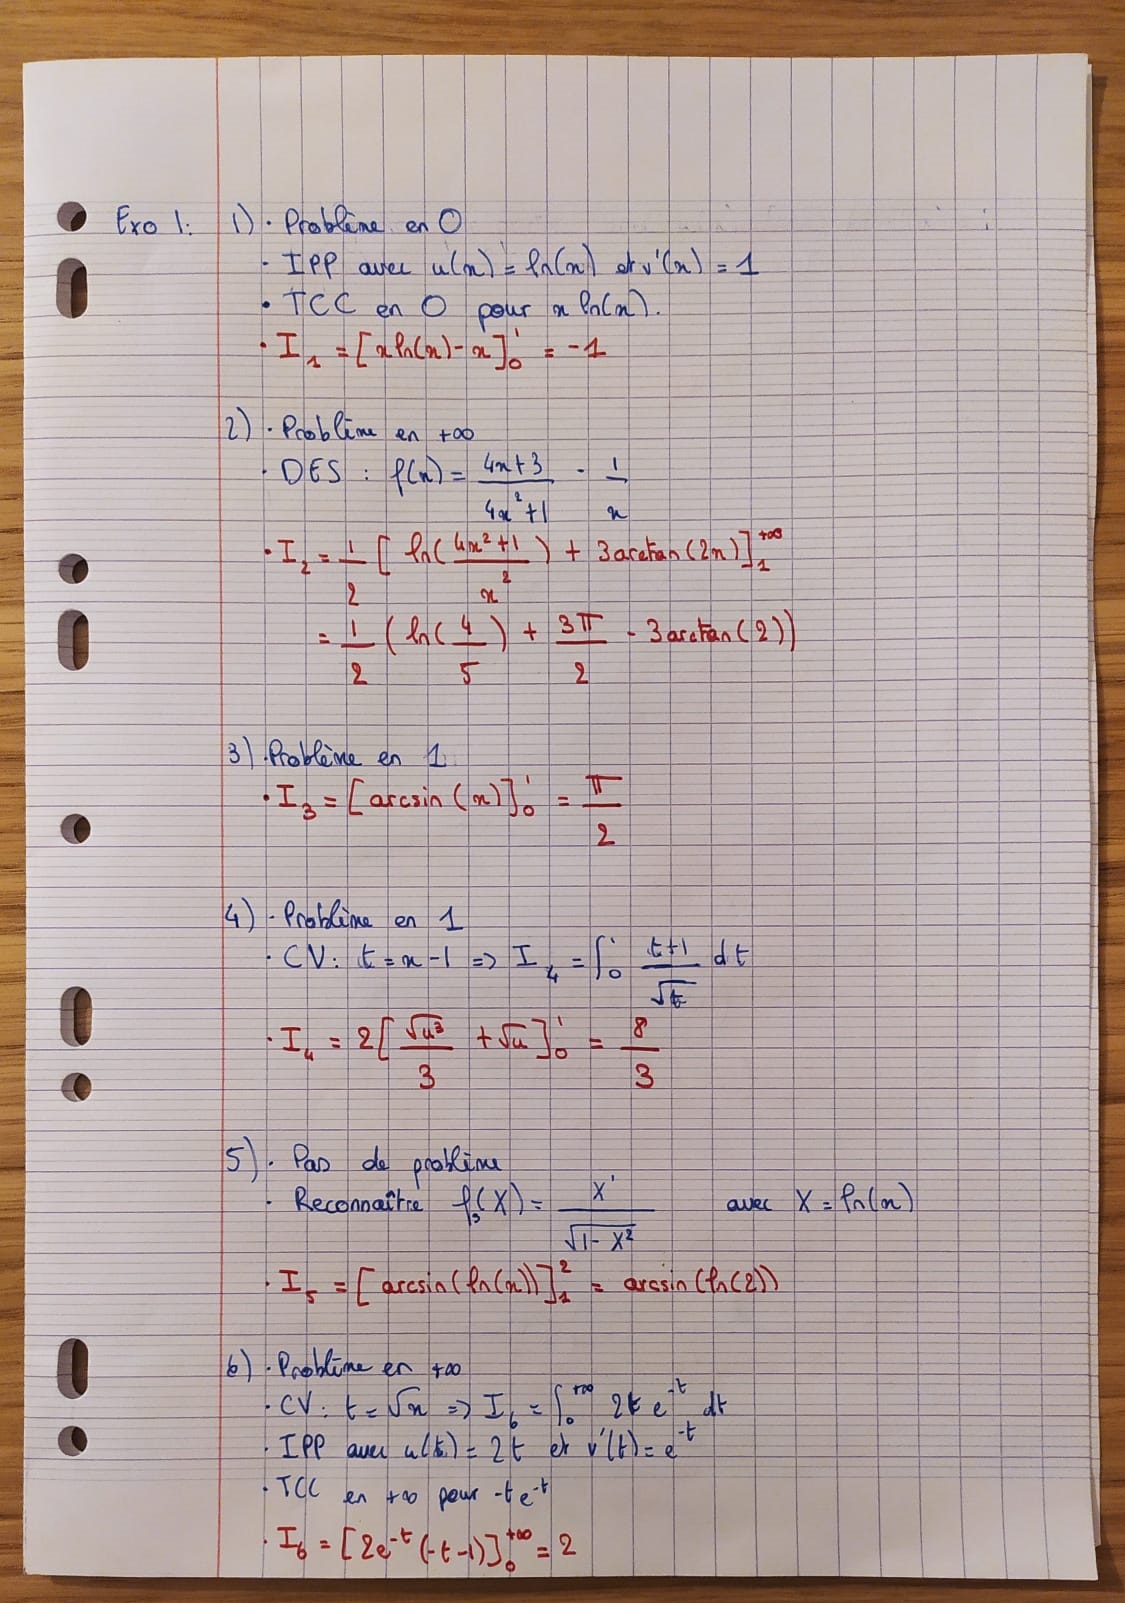 Exo 1: 1) · Problème en 0
· IPP avec u(x) = ln(x) et v'(x) = 1
· TCC en 0 pour x ln(x).
· I₁ = [x ln(x) - x]₀¹ = -1
2) · Problème en +∞
· DES : f(x) = (4x+3)/(4x²+1) - 1/x
· I₂ = 1/2 [ ln((4x²+1)/x²) + 3 arctan(2x) ]₁^+∞
= 1/2 ( ln(4/5) + 3π/2 - 3 arctan(2))
3) · Problème en 1
· I₃ = [arcsin(x)]₀¹ = π/2
4) · Problème en 1
· CV: t = x-1 => I₄ = ∫₀¹ (t+1)/√t dt
· I₄ = 2[ √u³/3 + √u ]₀¹ = 8/3
5) · Pas de problème
· Reconnaître f₅(X) = X'/√(1-X²) avec X = ln(x)
· I₅ = [arcsin(ln(x))]₁² = arcsin(ln(2))
6) · Problème en +∞
· CV: t = √x => I₆ = ∫₀^+∞ 2t e^-t dt
· IPP avec u(t) = 2t et v'(t) = e^-t
· TCC en +∞ pour -t e^-t
· I₆ = [2e^-t (-t-1)]₀^+∞ = 2